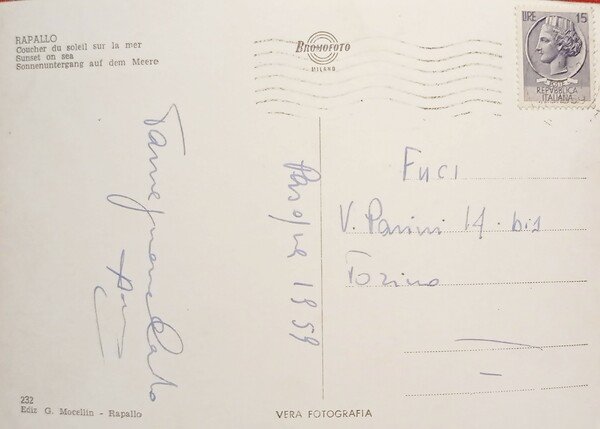 RAPALLO
Coucher du soleil sur la mer
Sunset on sea
Sonnenuntergang auf dem Meere
BROMOFOTO
MILANO
LIRE 15
POSTE
REPVBBLICA
ITALIANA
FUCI
V. Parini 14. bis
Torino
Pasqua 1959
232
Ediz G. Mocellin - Rapallo
VERA FOTOGRAFIA